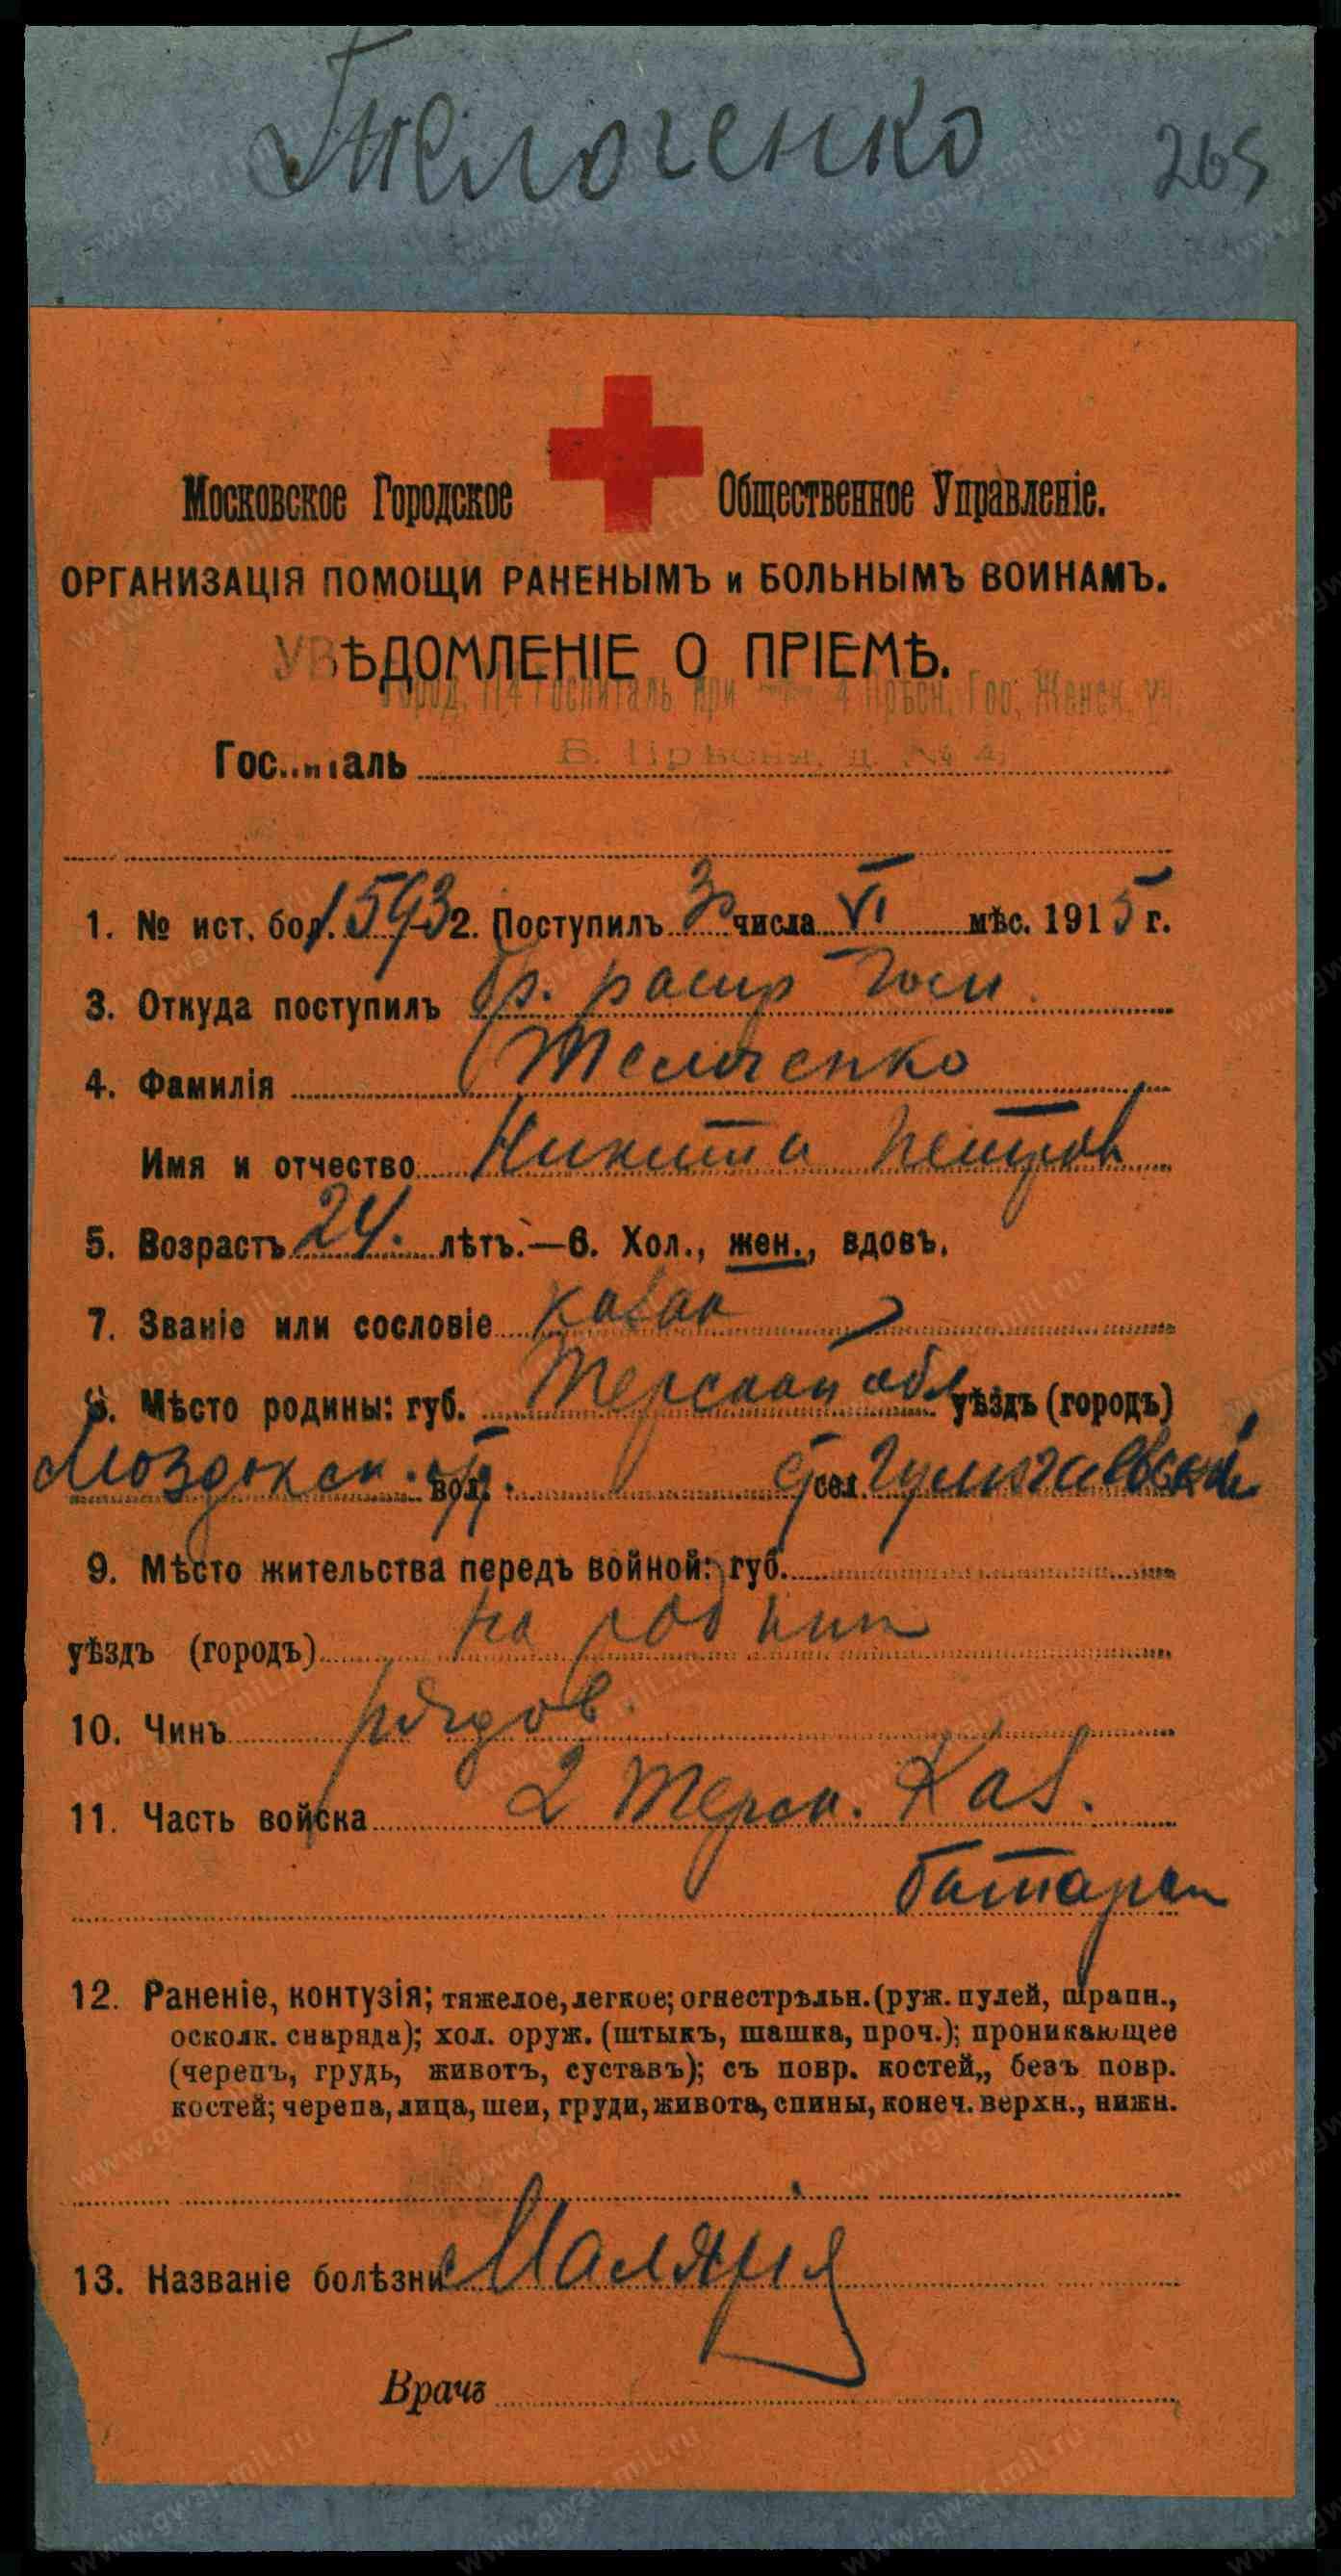 Телюченко 265
Московское Городское Общественное Управленіе.
ОРГАНИЗАЦІЯ ПОМОЩИ РАНЕНЫМЪ и БОЛЬНЫМЪ ВОИНАМЪ.
УВѢДОМЛЕНІЕ О ПРІЕМѢ.
Город. 114 Госпиталь при 4 Прѣсн. Гор. Женск. уч.
Госпиталь Б. Прѣсня, д. № 4
1. № ист. бол. 1593 2. Поступилъ 30 числа VI мѣс. 1915 г.
3. Откуда поступилъ распр госп.
4. Фамилія Телюченко
Имя и отчество Никита Петров
5. Возрастъ 24. лѣтъ.—6. Хол., жен., вдовъ.
7. Званіе или сословіе казак
8. Мѣсто родины: губ. Терской обл уѣздъ (городъ)
Моздокск. вол. сел.
9. Мѣсто жительства передъ войной: губ.
уѣздъ (городъ) на родин
10. Чинъ рядов.
11. Часть войска 2 Терск. Каз.
батареи
12. Раненіе, контузія; тяжелое, легкое; огнестрѣльн. (руж. пулей, шрапн.,
осколк. снаряда); хол. оруж. (штыкъ, шашка, проч.); проникающее
(черепъ, грудь, животъ, суставъ); съ повр. костей,, безъ повр.
костей; черепа, лица, шеи, груди, живота, спины, конеч. верхн., нижн.
13. Названіе болѣзни Малярия
Врачъ